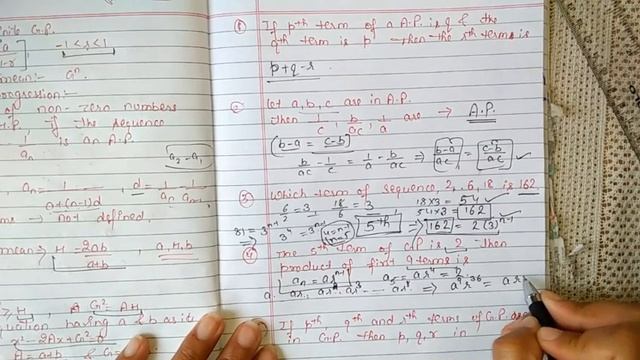 finite G.P.
-1 < r < 1
mean: Gⁿ.
progression:
of non-zero numbers
H.P. if the sequence
1/aₙ is an A.P.
a₂-a₁
, aₙ = 1/(a+(n-1)d) , d = 1/aₙ - 1/aₙ₋₁
→ not defined.
mean ⇒ H = 2ab/(a+b) , a, H, b
G² = AH
equation having a & b as its
x²-2Ax+G²=0
① If pth term of a A.P. is q & the
qth term is p then the rth term is
p+q-r.
② Let a, b, c are in A.P.
Then 1/c, 1/a are → A.P.
b-a = c-b
b/ac - 1/c = 1/a - b/ac ⇒ b-a/ac = c-b/ac ✓
③ Which term of sequence, 2, , 6, 18 is 162
6/2 = 3 18/6 = 3 18×3 = 54
54×3 = 162
81 = 3ⁿ⁻¹ 3⁴ = 3ⁿ⁻¹ 5th ⇒ 162 = 2(3)ⁿ⁻¹
④ The 5th term of G.P. is 2 then
product of first 9 terms is
aₙ = arⁿ⁻¹ a₅ = ar⁴ = 2
a. ar. ar². ar³ ... ar⁸ ⇒ a⁹r³⁶ = ar
If pth qth and rth terms of G.P. are
in G.P. then p, q, r in